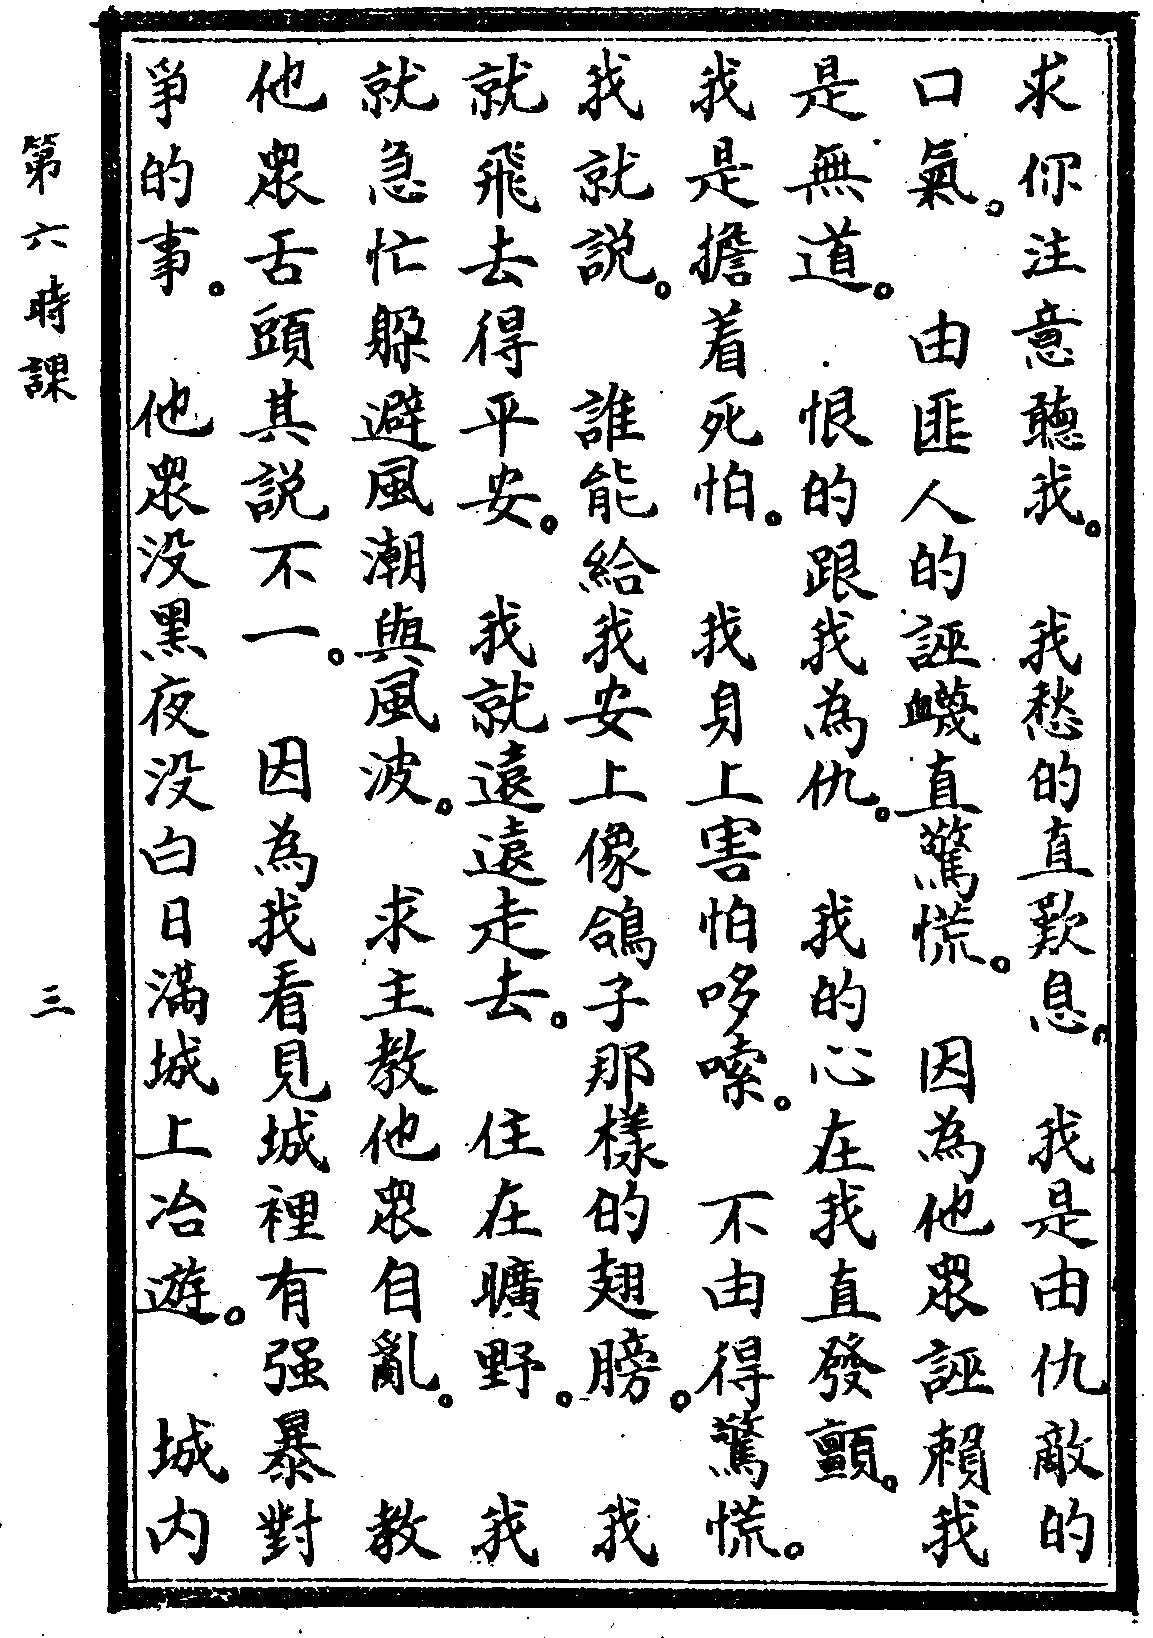 求你注意聽我。　我愁的直歎息。　我是由仇敵的
口氣。　由匪人的誣衊直驚慌。　因為他眾誣賴我
是無道。　恨的跟我為仇。　我的心在我直發顫。
我是擔着死怕。　我身上害怕哆嗦。　不由得驚慌。
我就説。　誰能給我安上像鴿子那樣的翅膀。　我
就飛去得平安。　我就遠遠走去。　住在曠野。　我
就急忙躲避風潮與風波。　求主教他眾自亂。　教
他眾舌頭其説不一。　因為我看見城裡有强暴對
爭的事。　他眾没黑夜没白日滿城上冶遊。　城内
第六時課
三